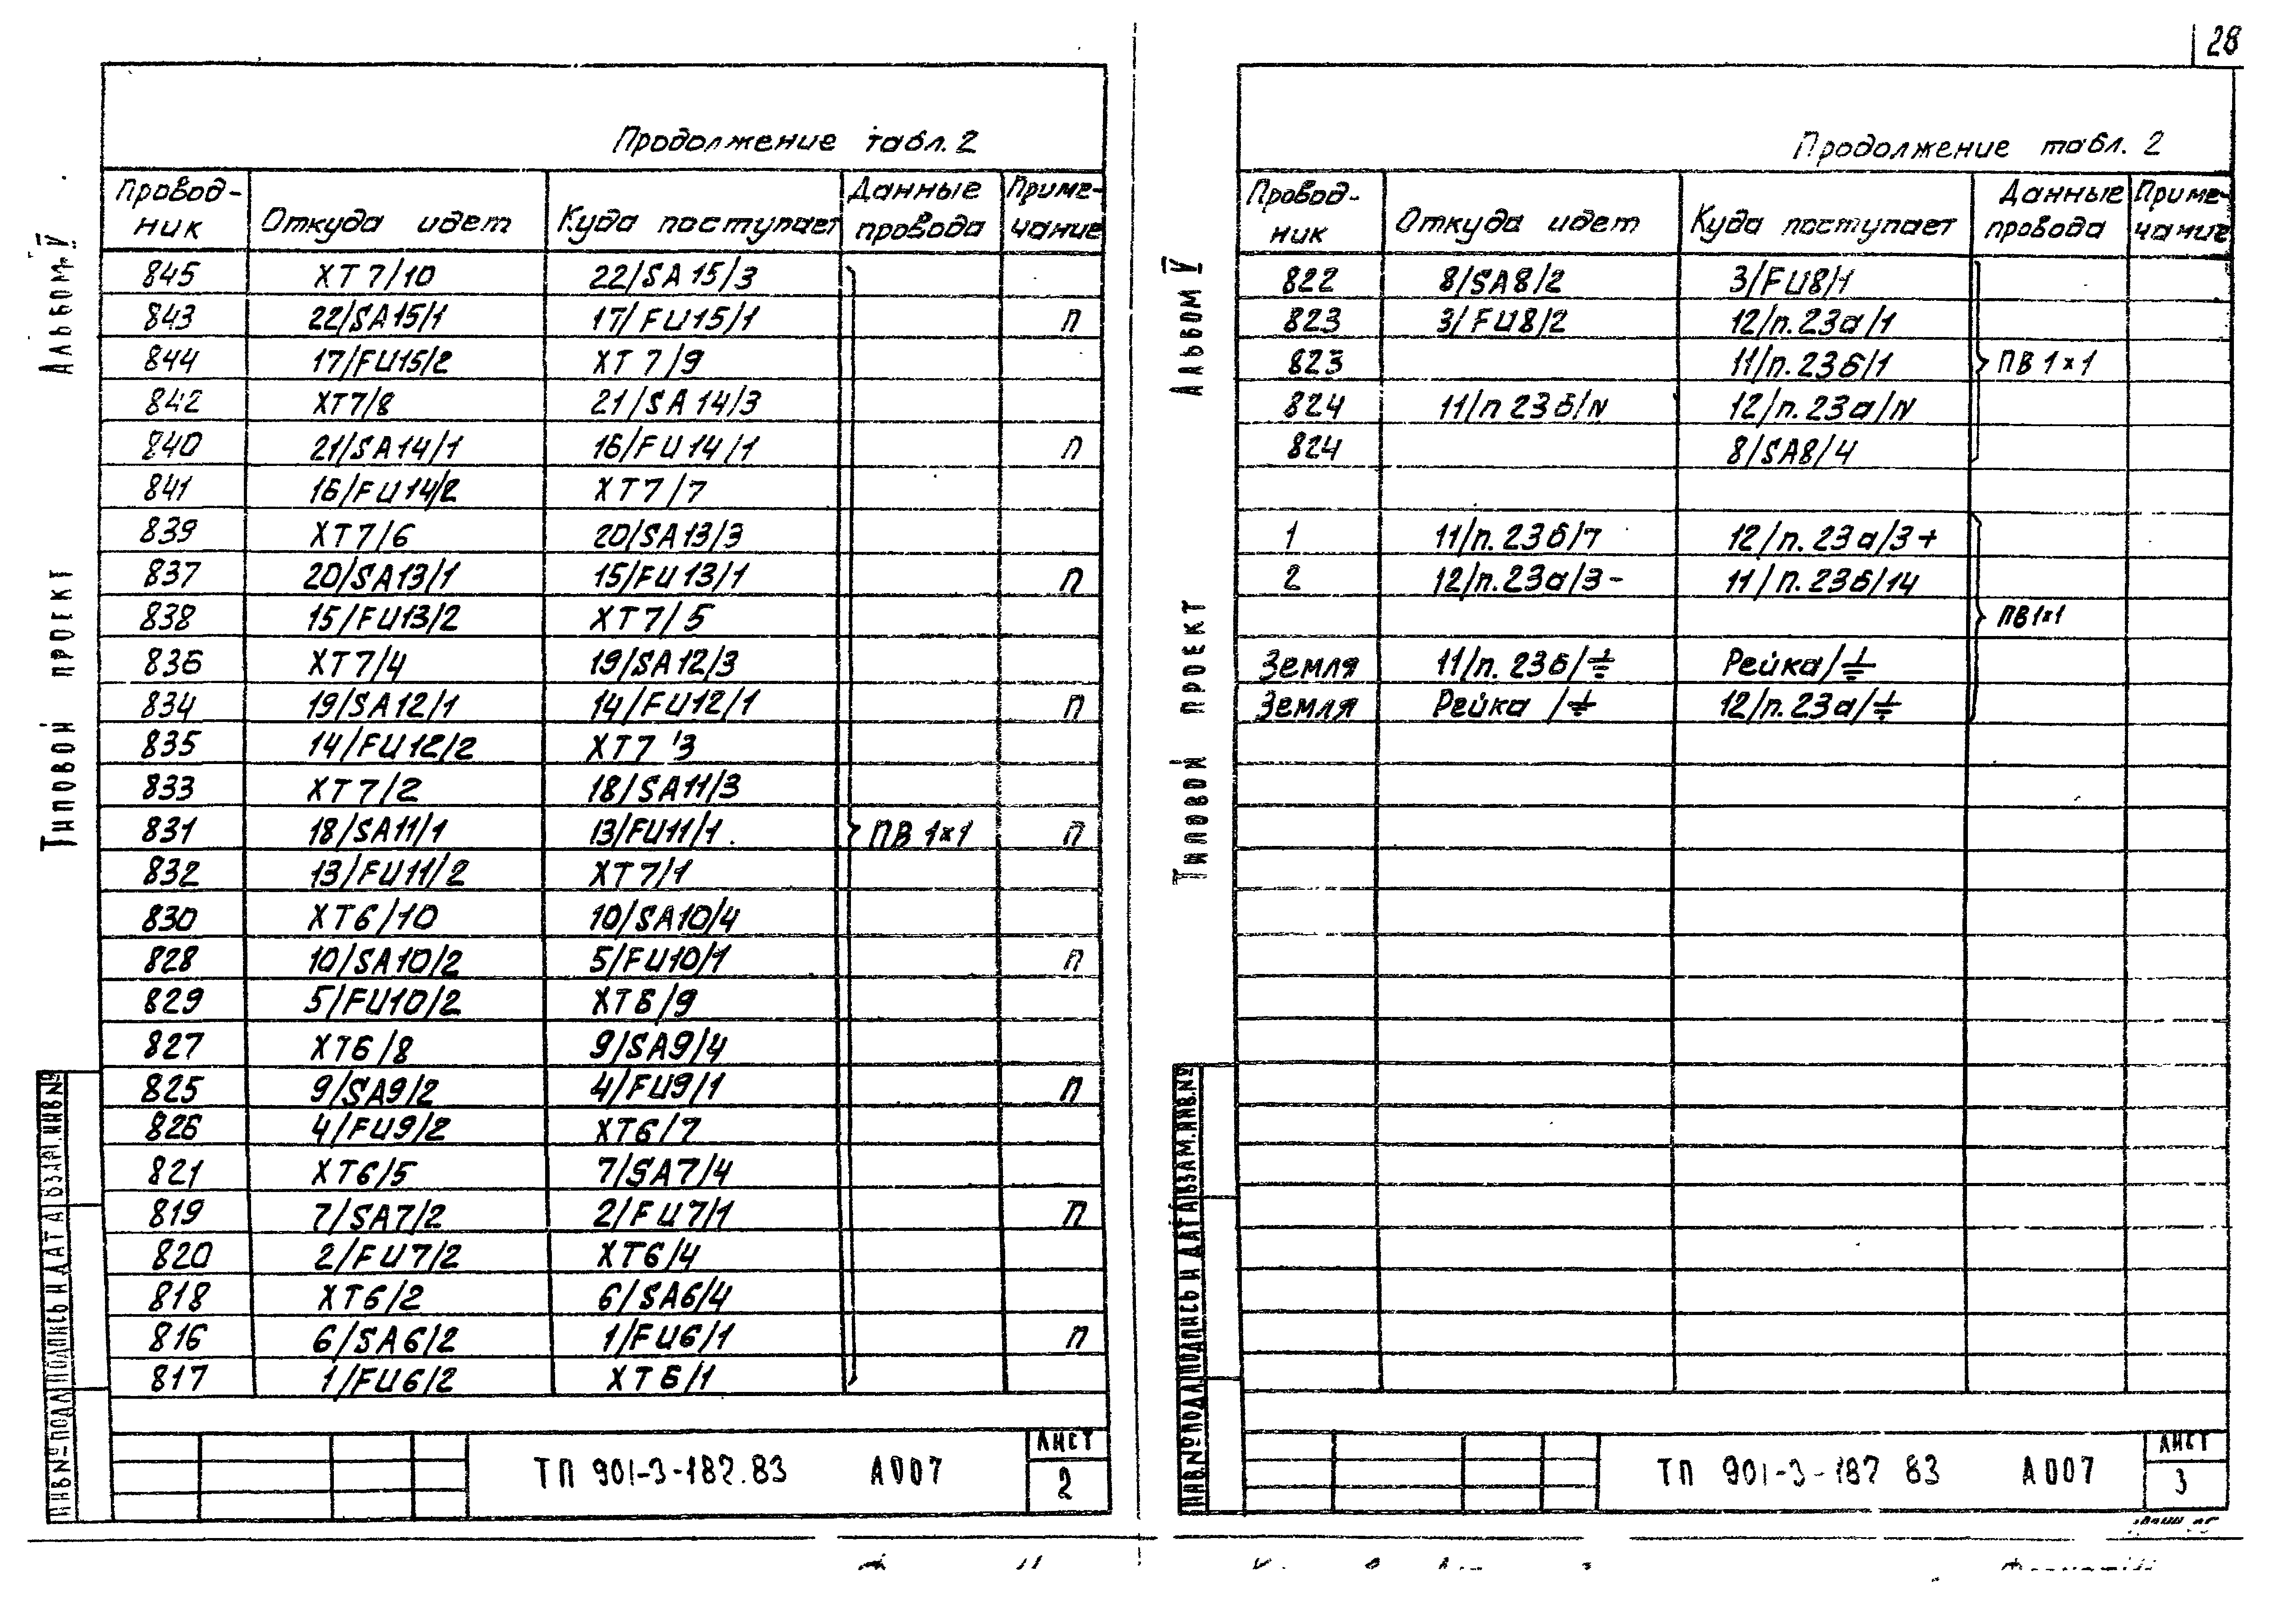 28
Продолжение табл. 2
Провод-ник Откуда идет Куда поступает Данные провода Приме-чание
845 XT7/10 22/SA15/3
843 22/SA15/1 17/FU15/1 П
844 17/FU15/2 XT7/9
842 XT7/8 21/SA14/3
840 21/SA14/1 16/FU14/1 П
841 16/FU14/2 XT7/7
839 XT7/6 20/SA13/3
837 20/SA13/1 15/FU13/1 П
838 15/FU13/2 XT7/5
836 XT7/4 19/SA12/3
834 19/SA12/1 14/FU12/1 П
835 14/FU12/2 XT7/3
833 XT7/2 18/SA11/3
831 18/SA11/1 13/FU11/1 ПВ 1×1 П
832 13/FU11/2 XT7/1
830 XT6/10 10/SA10/4
828 10/SA10/2 5/FU10/1 П
829 5/FU10/2 XT6/9
827 XT6/8 9/SA9/4
825 9/SA9/2 4/FU9/1 П
826 4/FU9/2 XT6/7
821 XT6/5 7/SA7/4
819 7/SA7/2 2/FU7/1 П
820 2/FU7/2 XT6/4
818 XT6/2 6/SA6/4
816 6/SA6/2 1/FU6/1 П
817 1/FU6/2 XT6/1
ТП 901-3-187.83 А007
ЛИСТ
2
Альбом V
Типовой проект
ИНВ № ПОДЛ ПОДПИСЬ И ДАТА ВЗАМ. ИНВ №
Продолжение табл. 2
Провод-ник Откуда идет Куда поступает Данные провода Приме-чание
822 8/SA8/2 3/FU8/1
823 3/FU8/2 12/п.23а/1
823 11/п.23б/1 ПВ 1×1
824 11/п 23б/N 12/п.23а/N
824 8/SA8/4
1 11/п.23б/7 12/п.23а/3+
2 12/п.23а/3- 11/п.23б/14
ПВ1×1
Земля 11/п.23б/⏚ Рейка/⏚
Земля Рейка/⏚ 12/п.23а/⏚
ТП 901-3-187 83 А007
ЛИСТ
3
Альбом V
Типовой проект
ИНВ № ПОДЛ ПОДПИСЬ И ДАТА ВЗАМ. ИНВ. №